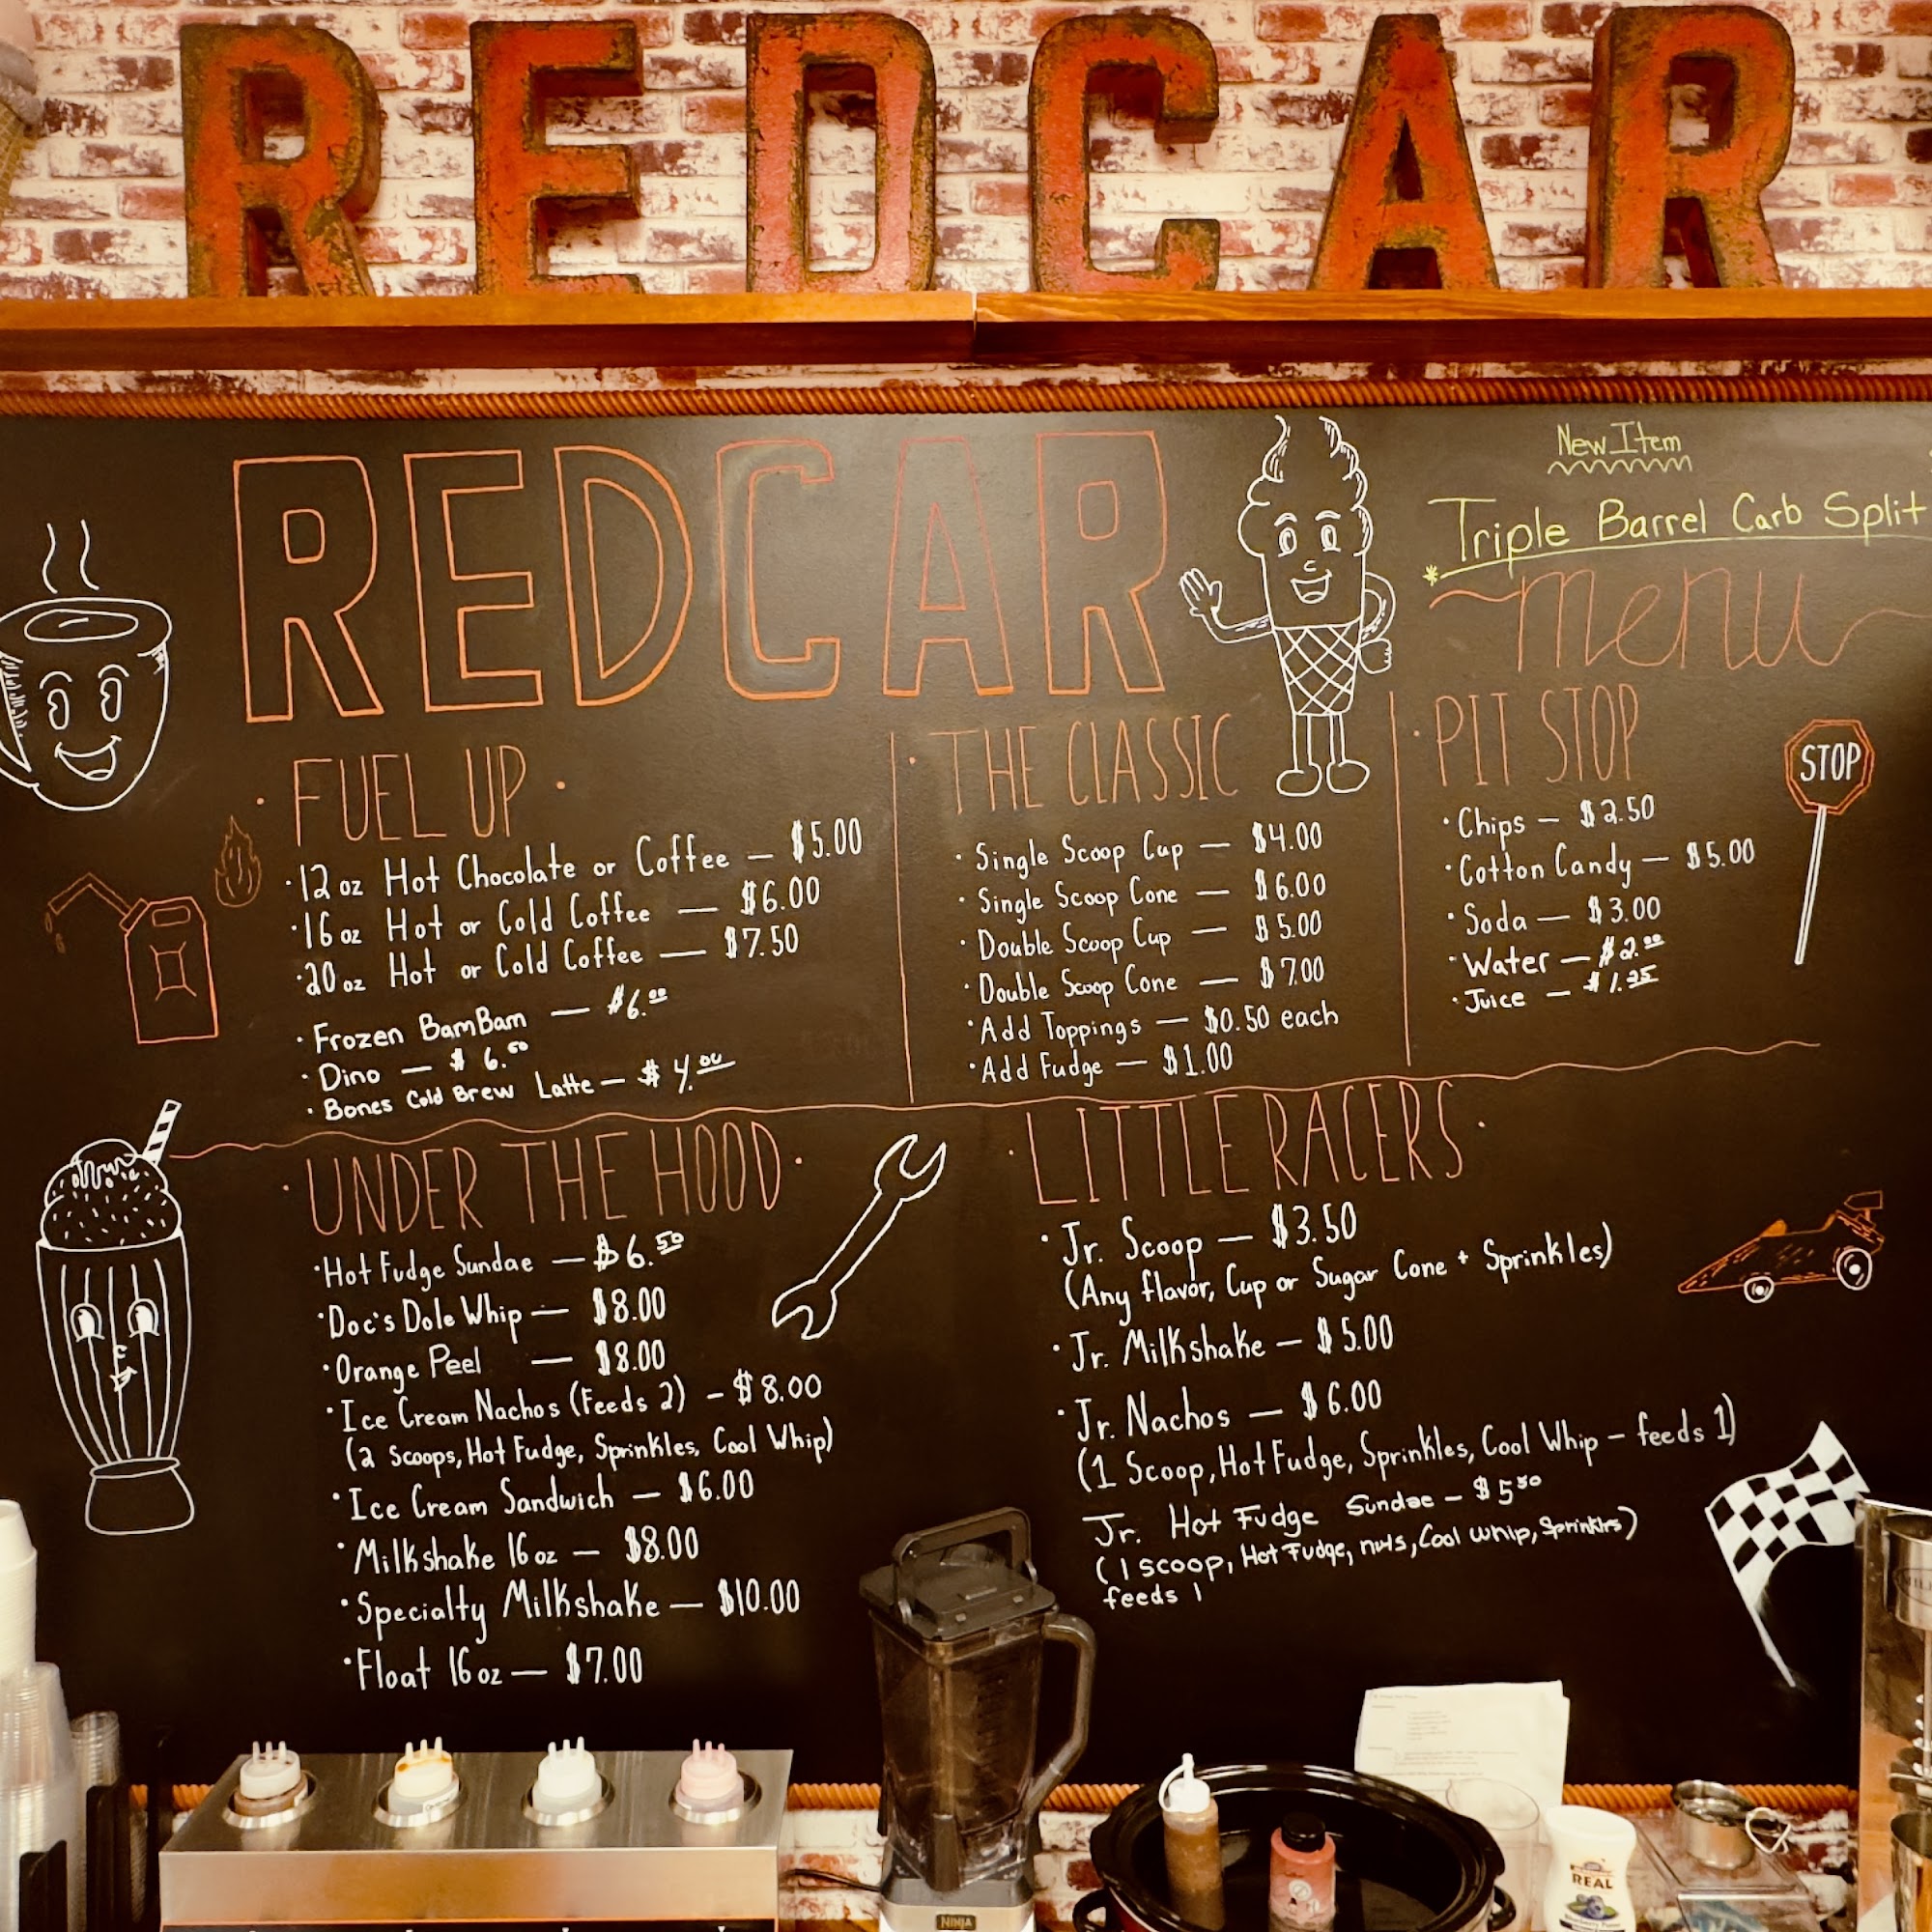 REDCAR
REDCAR
New Item
* Triple Barrel Carb Split
~menu
· FUEL UP ·
· 12 oz Hot Chocolate or Coffee — $5.00
· 16 oz Hot or Cold Coffee — $6.00
· 20 oz Hot or Cold Coffee — $7.50
· Frozen BamBam — $6.00
· Dino — $6.00
· Bones Cold Brew Latte — $4.00
· THE CLASSIC
· Single Scoop Cup — $4.00
· Single Scoop Cone — $6.00
· Double Scoop Cup — $5.00
· Double Scoop Cone — $7.00
· Add Toppings — $0.50 each
· Add Fudge — $1.00
· PIT STOP
STOP
· Chips — $2.50
· Cotton Candy — $5.00
· Soda — $3.00
· Water — $2.00
· Juice — $1.25
· UNDER THE HOOD ·
· Hot Fudge Sundae — $6.50
· Doc's Dole Whip — $8.00
· Orange Peel — $8.00
· Ice Cream Nachos (Feeds 2) – $8.00
(2 Scoops, Hot Fudge, Sprinkles, Cool Whip)
· Ice Cream Sandwich — $6.00
· Milkshake 16 oz — $8.00
· Specialty Milkshake — $10.00
· Float 16 oz — $7.00
· LITTLE RACERS ·
· Jr. Scoop — $3.50
(Any flavor, Cup or Sugar Cone + Sprinkles)
· Jr. Milkshake — $5.00
· Jr. Nachos — $6.00
(1 Scoop, Hot Fudge, Sprinkles, Cool Whip – feeds 1)
Jr. Hot Fudge Sundae – $5.50
(1 scoop, Hot Fudge, nuts, Cool whip, Sprinkles)
feeds 1
NINJA
REAL